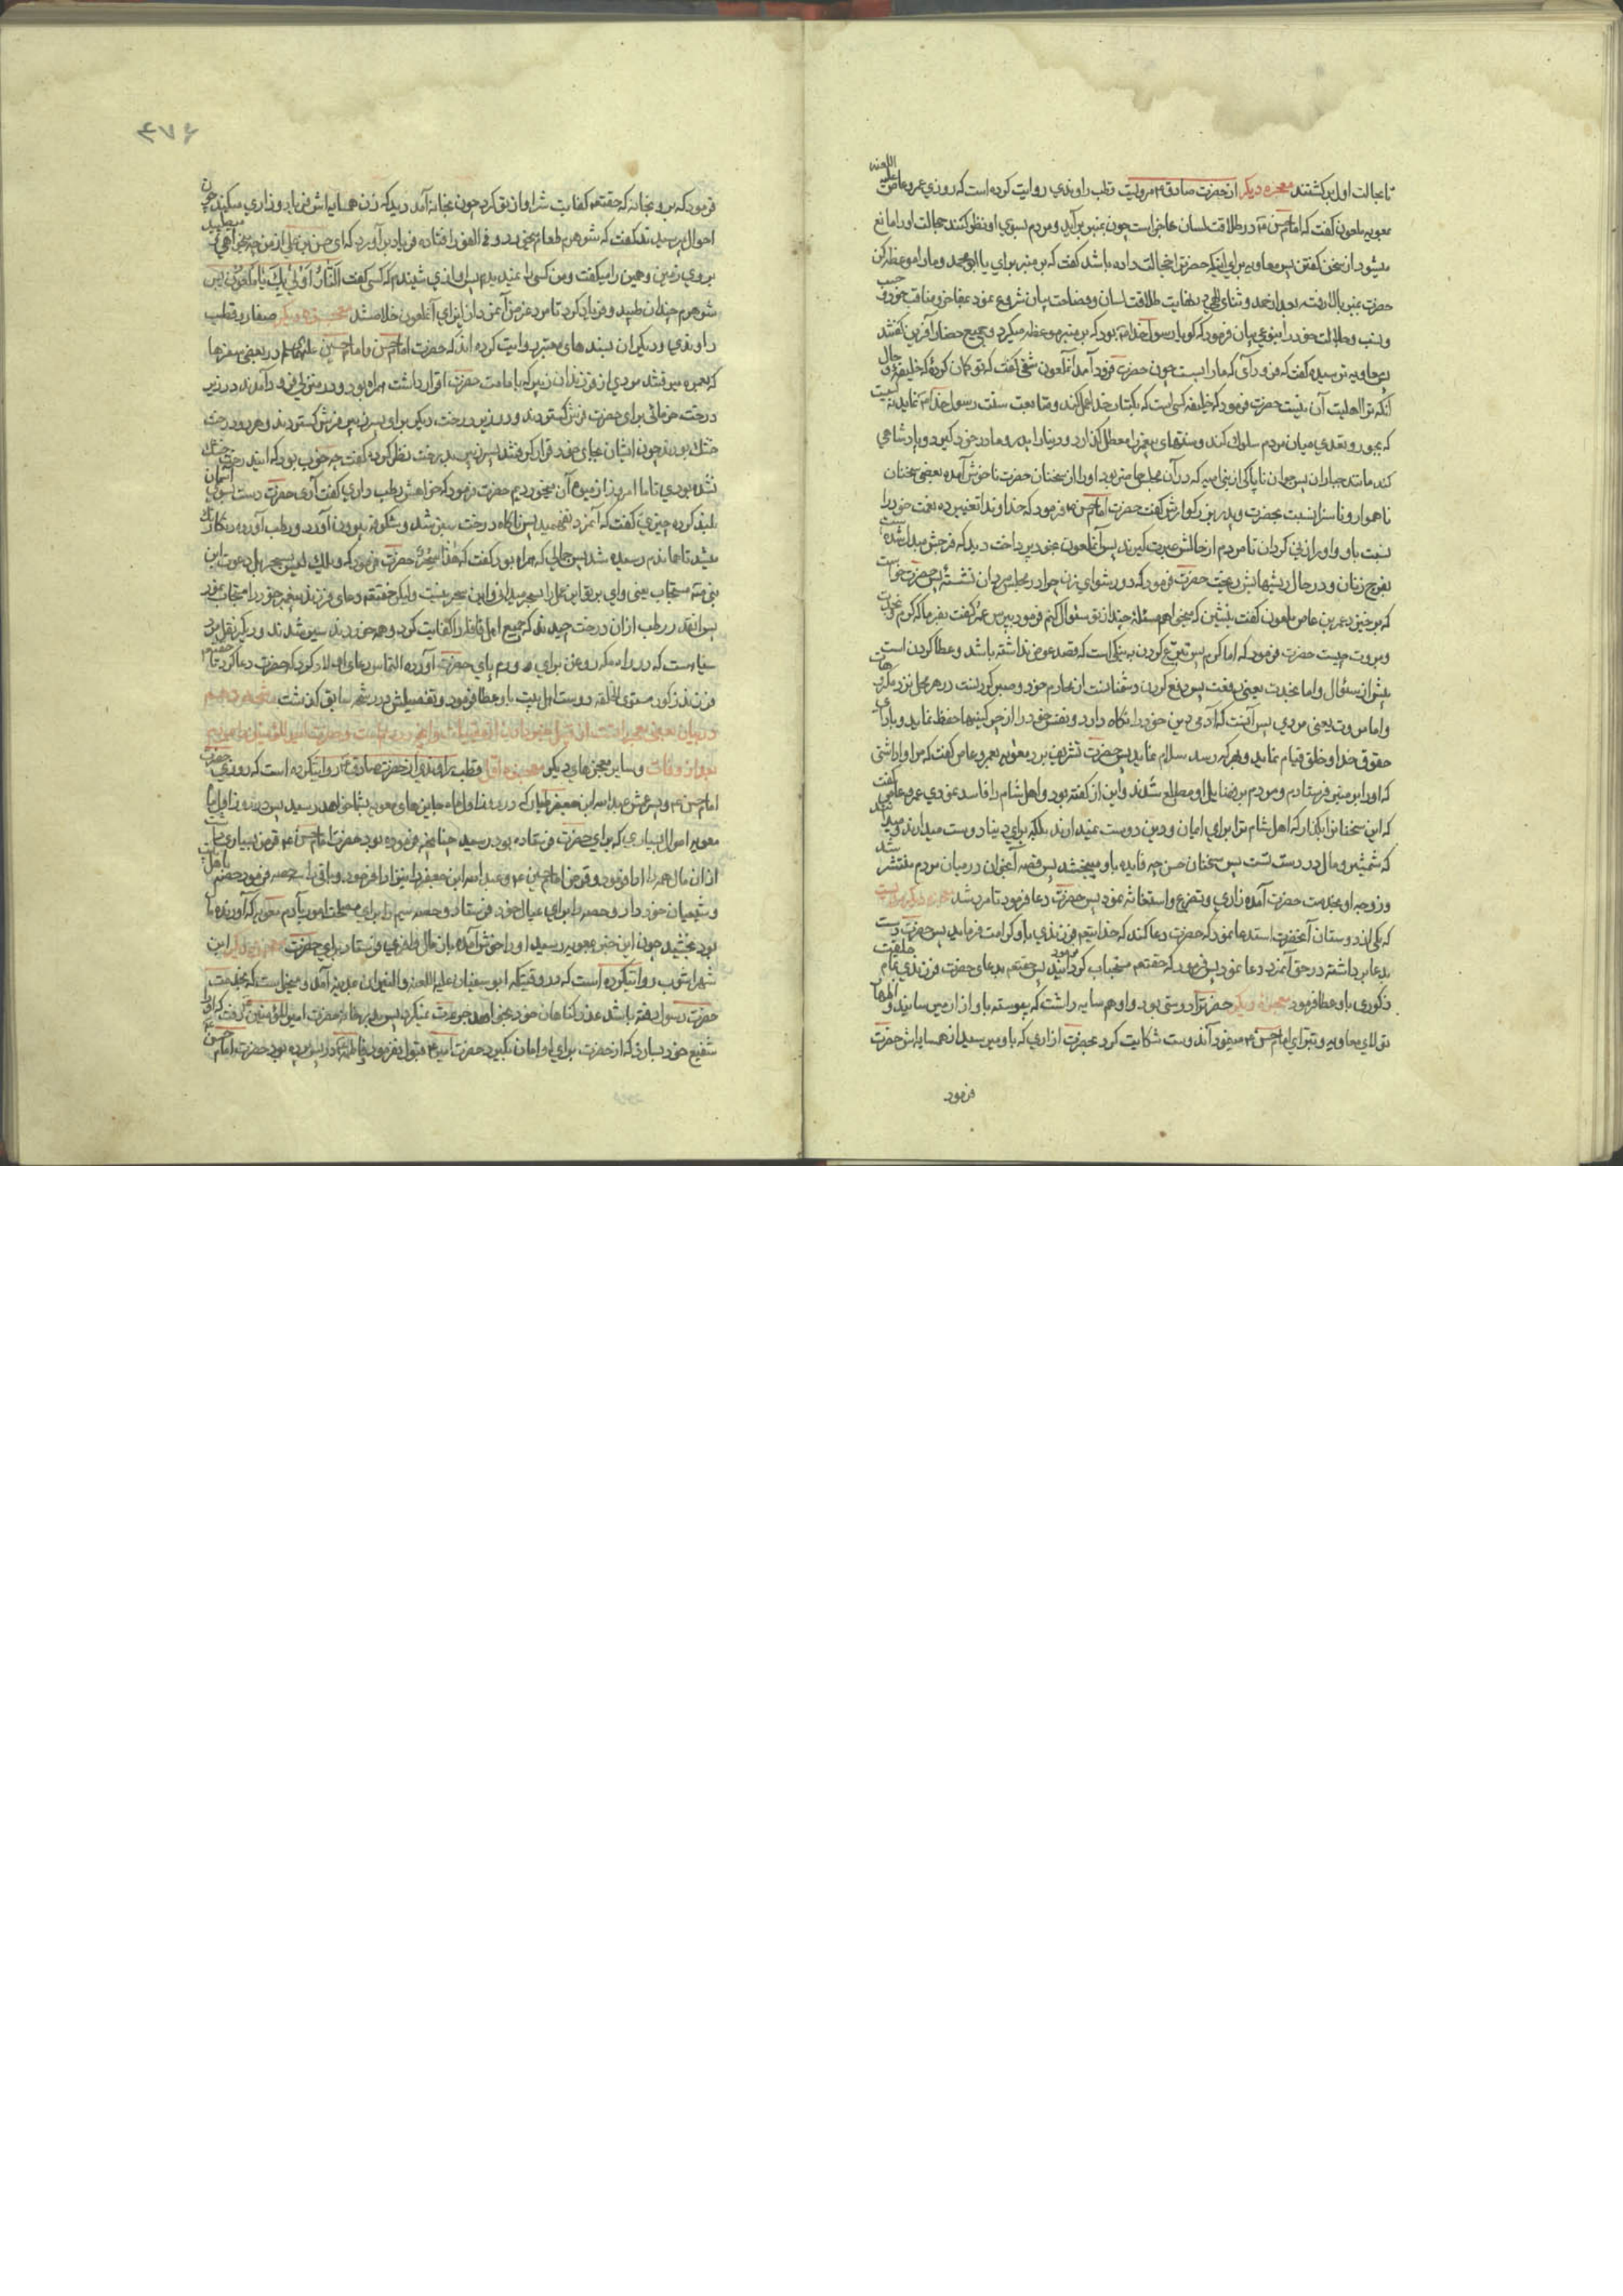 تا بحالت اول برگشتند معجزه دیگر از حضرت صادق ؑ مرویست قطب راوندی روایت کرده است که روزی عمرو عاص علیه اللعنه
معویه ملعون گفت که امام حسن ؑ در طلاقت لسان عاجز است چون بمنبر برآید و مردم بسوی او نظر کنند خجالت او را مانع
میشود از سخن گفتن پس معاویه برای اینکه حضرترا خجالت داده باشد گفت که بر منبر برای یا ابو محمد و ما را موعظه کن
حضرت بمنبر بالا رفت بعد از حمد و ثنای الهی در نهایت طلاقت لسان و فصاحت بیان شروع نمود بمفاخر و مناقب خود و حسب
و نسب و جلالت خود را بنوعی بیان فرمود که گویا رسول خدا بود که بر منبر موعظه میکرد و جمیع حضار آفرین گفتند
پس معاویه ترسیده گفت که فرود آی که ما را بس است چون حضرت فرود آمد آنملعون شقی گفت که تو گمان کرده که خلیفه و حال
آنکه ترا اهلیت آن نیست حضرت فرمود که خلیفه کسی است که بکتاب خدا عمل کند و متابعت سنت رسول خدا نماید نه کسیست
که بجور و تعدی میان مردم سلوک کند و سنتهای پیغمبر را معطل گذارد و دنیا را پدر و مادر خود گیرد و پادشاهی
کند مانند جباران پس جوان ناپاکی از بنی امیه که در آن مجلس حاضر بود او را از سخنان حضرت ناخوش آمده بعضی سخنان
ناهموار و ناسزا نسبت بحضرت و پدر بزرگوارش گفت حضرت امام حسن ؑ فرمود که خداوندا تغییر ده نعمت خود را
نسبت باو و او را زنی گردان تا مردم از حالش عبرت گیرند پس آنملعون بخود پرداخت دید که فرجش مبدل شده است
بفرج زنان و در حال ریشهایش ریخت حضرت فرمود که دور شو ای زن چرا در مجلس مردان نشستهٔ پس حضرت خواست
که برخیزد عمر بن عاص ملعون گفت بنشین که میخواهم مسئلهٔ چند از تو سئوال کنم فرمود بپرس عمرو گفت بفرما که کرم و نجدت
و مروت چیست حضرت فرمود که اما کرم پس تبرع کردن به نیکی است که قصد عوض نداشته باشد و عطا کردن است
پیش از سئوال و اما نجدت یعنی رفعت پس دفع کردن دشمنانست از محارم خود و صبر کردنست در هر محل نزد مکروهات
و اما مروت یعنی مردی پس آنست که آدمی دین خود را نگاه دارد و نفس خود را از چرکینیها حفظ نماید و بادای
حقوق خدا و خلق قیام نماید و بهر که رسد سلام نماید پس حضرت تشریف برد معویه بعمرو عاص گفت که مرا واداشتی
که او را بر منبر فرستادم و مردم بر فضایل او مطلع شدند و این از گفته بود و اهل شام را فاسد نمودی عمرو عاص گفت
که این سخنانرا بگذار که اهل شام ترا برای ایمان و دین دوست نمیدارند بلکه برای دنیا دوست میدارند و میدانند
که شمشیر و مال در دست تست پس سخنان حسن چه فایده باو میبخشد پس قصه آنجوان در میان مردم منتشر شد
و زوجه او بخدمت حضرت آمده زاری و تضرع و استغاثه نمود پس حضرت دعا فرمود تا مرد شد معجزه دیگر مرویست
که یکی از دوستان آنحضرت استدعا نمود که حضرت دعا کند که خدایتعم فرزندی باو کرامت فرماید پس حضرت دست
بدعا برداشته در حق آنمرد دعا نمود پس فرمود که حقتعم مستجاب گردانید پس حقتعم بدعای حضرت فرزندی تمام خلقت
ذکوری باو عطا فرمود معجزه دیگر حضرترا دوستی بود و او همسایه داشت که پیوسته باو آزار میرسانید و اظهار
تولای معاویه و تبرای امام حسن ؑ مینمود آندوست شکایت کرد بحضرت ازاری که باو میرسید از همسایه اش حضرت
فرمود
۴۷۶
فرمود که برو بخانه که حقتعم کفایت شر او از تو کرد چون بخانه آمد دید که زن همسایه اش فریاد و زاری میکند چون
احوال پرسید زن گفت که شوهرم طعام میخورد و فی الفور افتاده فریاد برآورد که ای حسن بن علی از من چه میخواهی
بر روی زمین و همین را میگفت و من کسی را نمیدیدم پس آوازی شنیدم که کسی گفت النار اولی بک یا ملعون پس
شوهرم چندان طپید و فریاد کرد تا مرد غرض آنمرد از ایذای آنملعون خلاص شد معجزه دیگر صفار و قطب
راوندی و دیگران بسندهای معتبر روایت کرده اند که حضرت امام حسن و امام حسین علیهما در بعضی سفرها
که بعمره میرفتند مردی از فرزندان زبیر که بامامت حضرت اقرار داشت همراه بود و در منزلی فرود آمدند در زیر
درخت خرمائی برای حضرت فرش گستردند و در زیر درخت دیگر برای پسر زبیر فرش گستردند و هر دو درخت
خشک بودند چون ایشان بجای خود قرار گرفتند پسر زبیر بدرخت نظر کرده گفت چه خوب بود که اینددرخت خشک
نشده بودی تا ما امروز از میوه آن میخوردیم حضرت فرمود که خواهش رطب داری گفت آری حضرت دست بسوی آسمان
بلند کرده چیزی گفت که آنمرد نفهمید پس ناگاه درخت سبز شد و شکوفه بیرون آورد و رطب آورده رنگارنگ
بنی مستجاب یعنی وای بر تو این عمل را سحر میدانی و این سحر نیست ولیکن حقتعم دعای فرزند پیغمبر خود را مستجاب نمود
پس آنقدر رطب از آن درخت چیدند که جمیع اهل قافله را کفایت کرد و همه خوردند و سیر شدند
سیاه است که در راه مکه روغن برای ورم پای حضرت آورده التماس دعای اولاد کرد که حضرت دعا کرد تا حقتعم
فرزند ذکور مستوی الخلقه دوست اهل بیت باو عطا فرمود و تفصیلش در رشحه سابق گذشت
و سایر معجزهای دیگر معجزه اول قطب راوندی از حضرت صادق ؑ روایتکرده است که روزی حضرت
امام حسن ؑ و پسر عمش عبدالله ابن جعفر طیار که در روز اول ماه جایزهای معویه بشما خواهد رسید پس در روز اول ماه
معویه اموال بسیاری که برای حضرت فرستاده بود رسید چنانچه فرموده بود حضرت امام حسن ؑ قرض بسیاری داشت
از آن مال همه را ادا فرمود و قرض امام حسین ؑ و عبدالله ابن جعفر را نیز ادا فرمود و باقی را سه حصه فرمود باهل بیت
و شیعیان خود داد و حصه را برای عیال خود فرستاد
بود بخشید چون این خبر بمعویه رسید او را خوش آمده باز مال وافری فرستاد برای حضرت معجزه دیگر ابن
شهراشوب روایتکرده است که در وقتیکه ابو سفیان علیه اللعنه والنیران بمدینه آمد و میخواست که بخدمت
حضرت رسول رفته باشد عذر گناهان خود بخواهد جرءت نمیکرد پس بدر خانه حضرت امیر المؤمنین ؑ رفت که او را
شفیع خود سازد که از حضرت برای او امان بگیرد حضرت امیر ؑ قبول نفرمود و فاطمه ؑ در پس پرده بود حضرت امام حسن